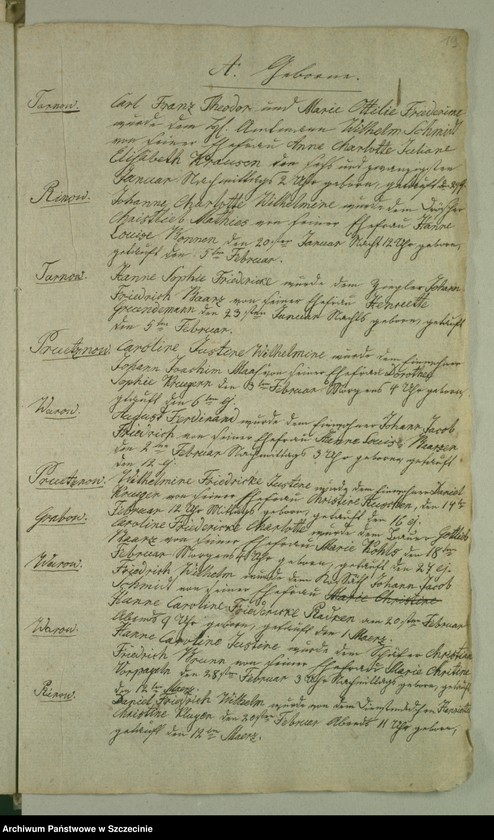 19
A. Geborne.
Tarnow. Carl Franz Theodor und Marie Ottilie Friederike
wurde dem Hl. Amtmann Wilhelm Schmid
von seiner Ehefrau Anne Charlotte Juliane
Elisabeth Krausen den
Januar Nachmittags 2 Uhr geboren, getauft
Rinow. Johanne Charlotte Wilhelmine wurde dem
Christlieb Mathies von seiner Ehefrau Hanne
Louise Wonnen den 20sten Januar Nachts 12 Uhr geboren,
getauft den 5ten Februar.
Tarnow. Hanne Sophie Friedricke wurde dem Johann
Friedrich Baarz von seiner Ehefrau Henriette
Grundemann den 23sten Januar Nachts geboren, getauft
den 5ten Februar.
Pruetznow. Caroline Justine Wilhelmine wurde dem Einwohner
Johann Joachim Maas von seiner Ehefrau Dorothee
Sophie Kruegern den Februar Morgens 4 Uhr geboren,
getauft den 6ten ej.
Warow. August Ferdinand wurde dem Einwohner Johann Jacob
Friedrich von seiner Ehefrau Hanne Louise
den 2ten Februar Nachmittags 3 Uhr geboren, getauft
den 12 ej.
Pruetznow. Wilhelmine Friedricke Justine wurde dem Einwohner Daniel
Kruger von seiner Ehefrau Christine den 14ten
Februar 12 Uhr Mittags geboren, getauft den 16 ej.
Grabow. Caroline Friedericke Charlotte wurde dem Bauer Gottlieb
Baarz von seiner Ehefrau Marie Kohls den 18ten
Februar Morgens 4 Uhr geboren, getauft den 24 ej.
Warow. Friedrich Wilhelm wurde dem Johann Jacob
Schmidt von seiner Ehefrau Marie Christine
Hanne Caroline Friedricke Radken den 20sten Februar
Abends 9 Uhr geboren, getauft den 1 Maerz.
Warow. Hanne Caroline Justine wurde dem Schäfer Christian
Friedrich von seiner Ehefrau Marie Christine
den 28sten Februar 3 Uhr Nachmittags geboren, getauft
den 12ten Maerz.
Rinow. Daniel Friedrich Wilhelm wurde von dem Dienstmädchen Henriette
Christine den Februar Abends 11 Uhr geboren,
getauft den 12ten Maerz.
Archiwum Państwowe w Szczecinie